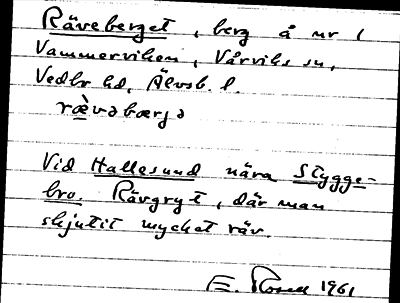 Räveberget, berg å nr 1
Vammerviken, Vårviks sn,
Vedbo hd, Älvsb. l.
rævəbærjə
Vid Hallesund nära Stygge-
bro. Rävgryt, där man
skjutit mycket räv.
E. Rosell 1961